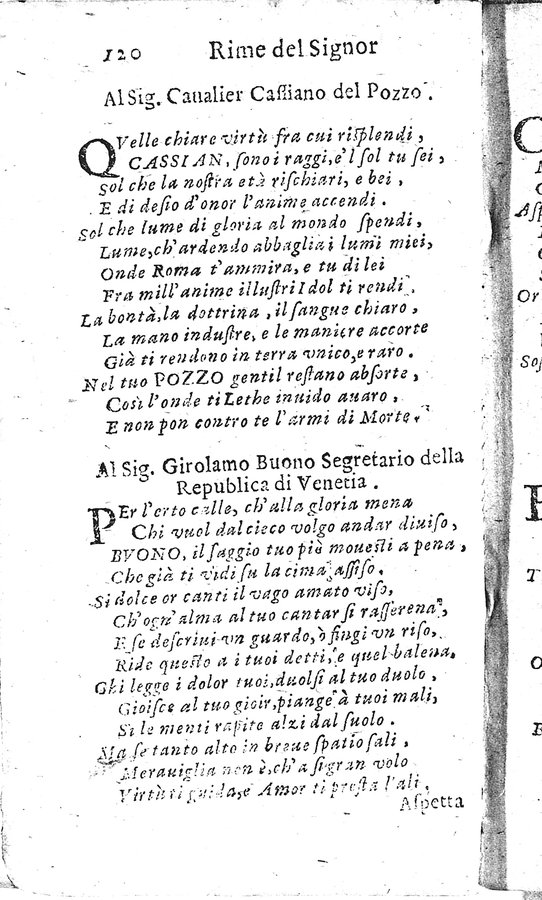 120 Rime del Signor
Al Sig. Caualier Caſſiano del Pozzo.
QVelle chiare virtù fra cui riſplendi,
CASSIAN, ſono i raggi, e'l ſol tu ſei,
Sol che la noſtra età riſchiari, e bei,
E di deſio d'onor l'anime accendi.
Sol che lume di gloria al mondo ſpendi,
Lume, ch'ardendo abbaglia i lumi miei,
Onde Roma t'ammira, e tu di lei
Fra mill'anime illuſtri Idol ti rendi.
La bontà, la dottrina, il ſangue chiaro,
La mano induſtre, e le maniere accorte
Già ti rendono in terra vnico, e raro.
Nel tuo POZZO gentil reſtano abſorte,
Così l'onde ti Lethe inuido auaro,
E non pon contro te l'armi di Morte.
Al Sig. Girolamo Buono Segretario della
Republica di Venetia.
PEr l'erto calle, ch'alla gloria mena
Chi vuol dal cieco volgo andar diuiſo,
BVONO, il ſaggio tuo piè moueſti a pena,
Che già ti vidi ſu la cima aſſiſo.
Si dolce or canti il vago amato viſo,
Ch'ogn'alma al tuo cantar ſi raſſerena,
E ſe deſcriui vn guardo, ò fingi vn riſo,
Ride queſto a i tuoi detti, e quel balena.
Chi legge i dolor tuoi, duolſi al tuo duolo,
Gioiſce al tuo gioir, piange à tuoi mali,
Si le menti rapite alzi dal ſuolo.
Ma ſe tanto alto in breue ſpatio ſali,
Merauiglia non è, ch'a ſi gran volo
Virtù ti guida, e Amor ti preſta l'ali,
Aſpetta